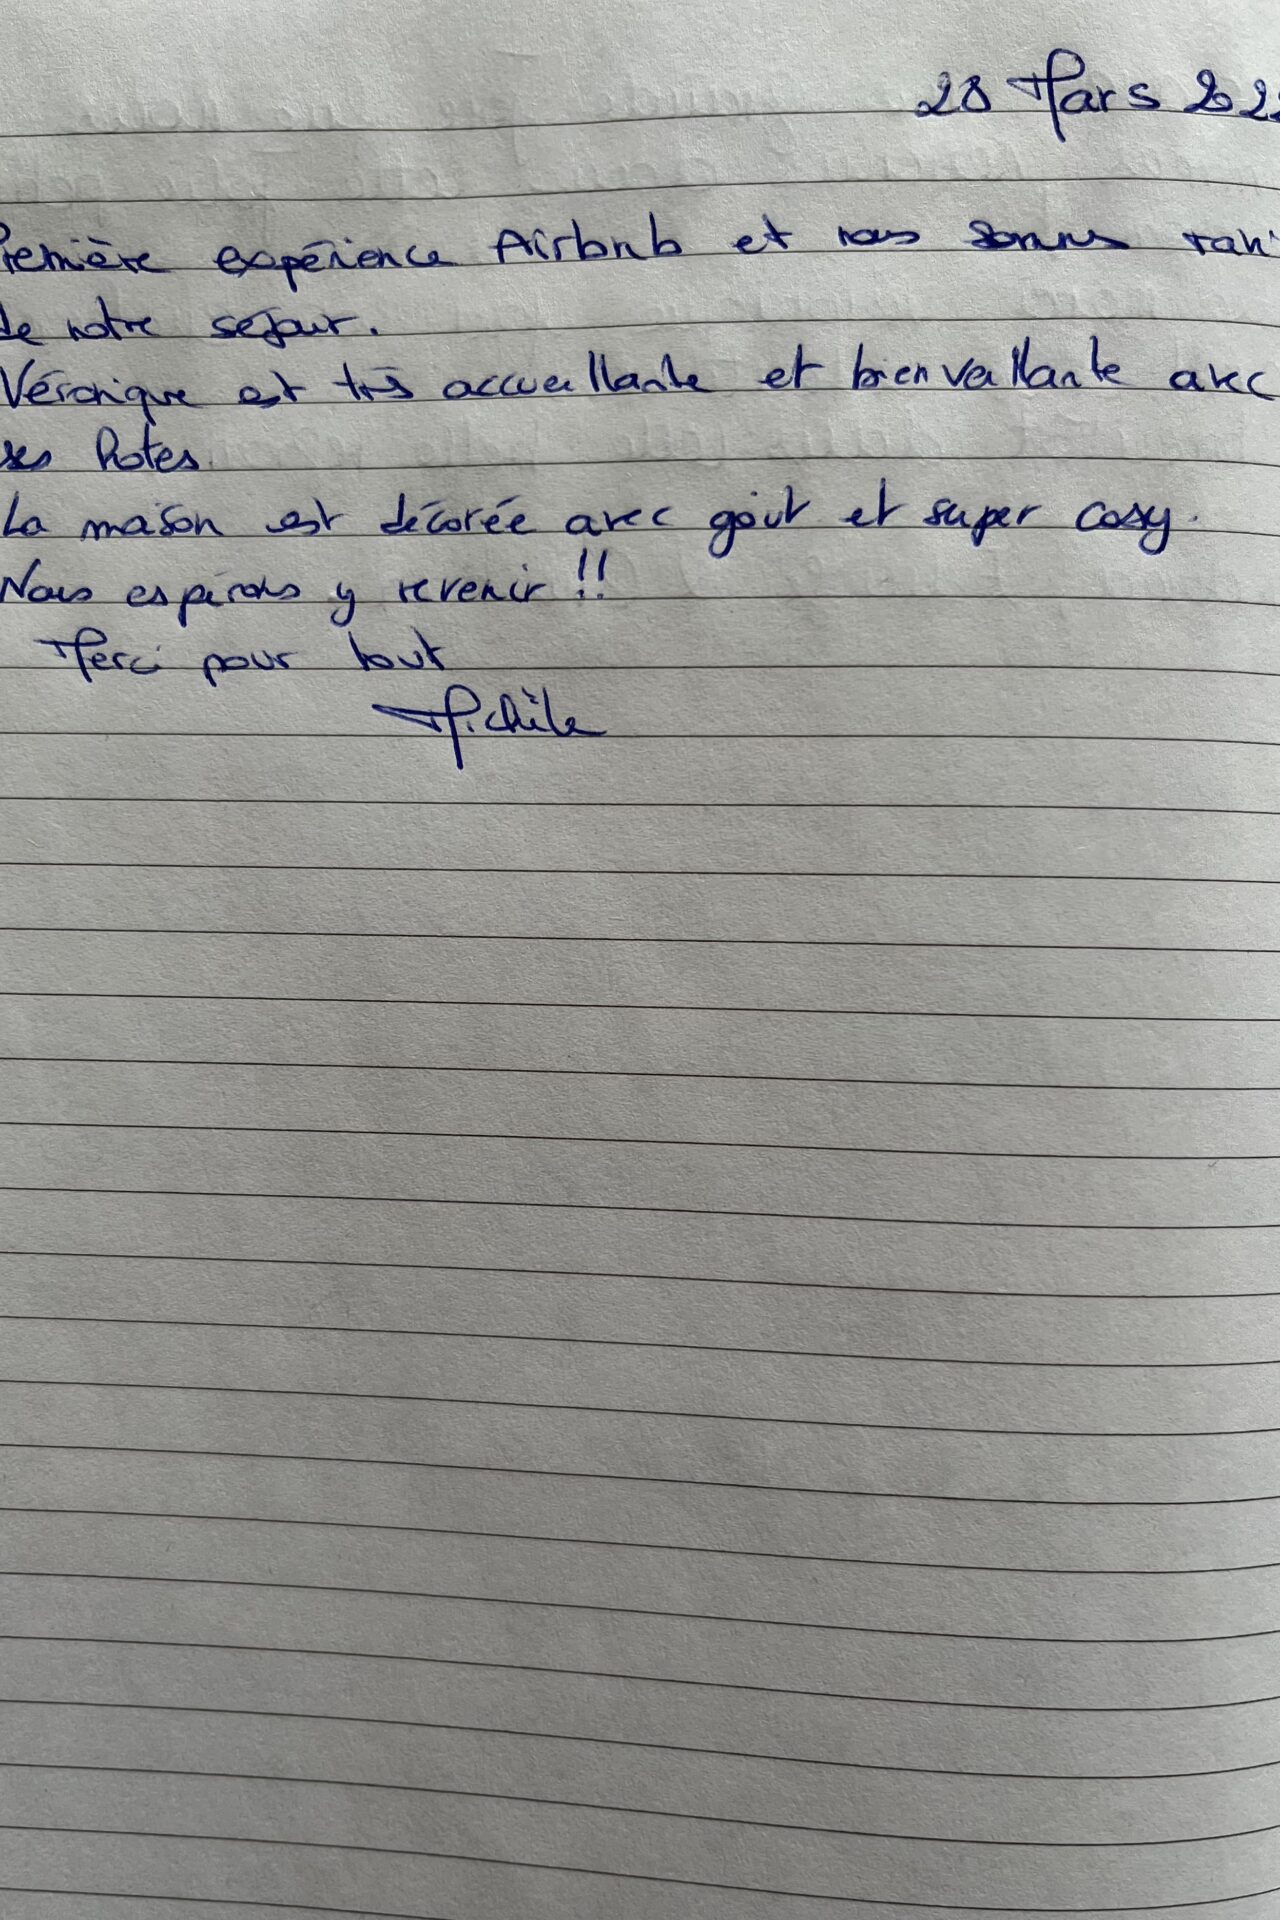 28 Mars 202
Première expérience Airbnb et nous sommes ravi
de notre séjour.
Véronique est très accueillante et bienveillante avec
ses hotes.
La maison est décorée avec goût et super cosy.
Nous espérons y revenir !!
Merci pour tout
Michèle